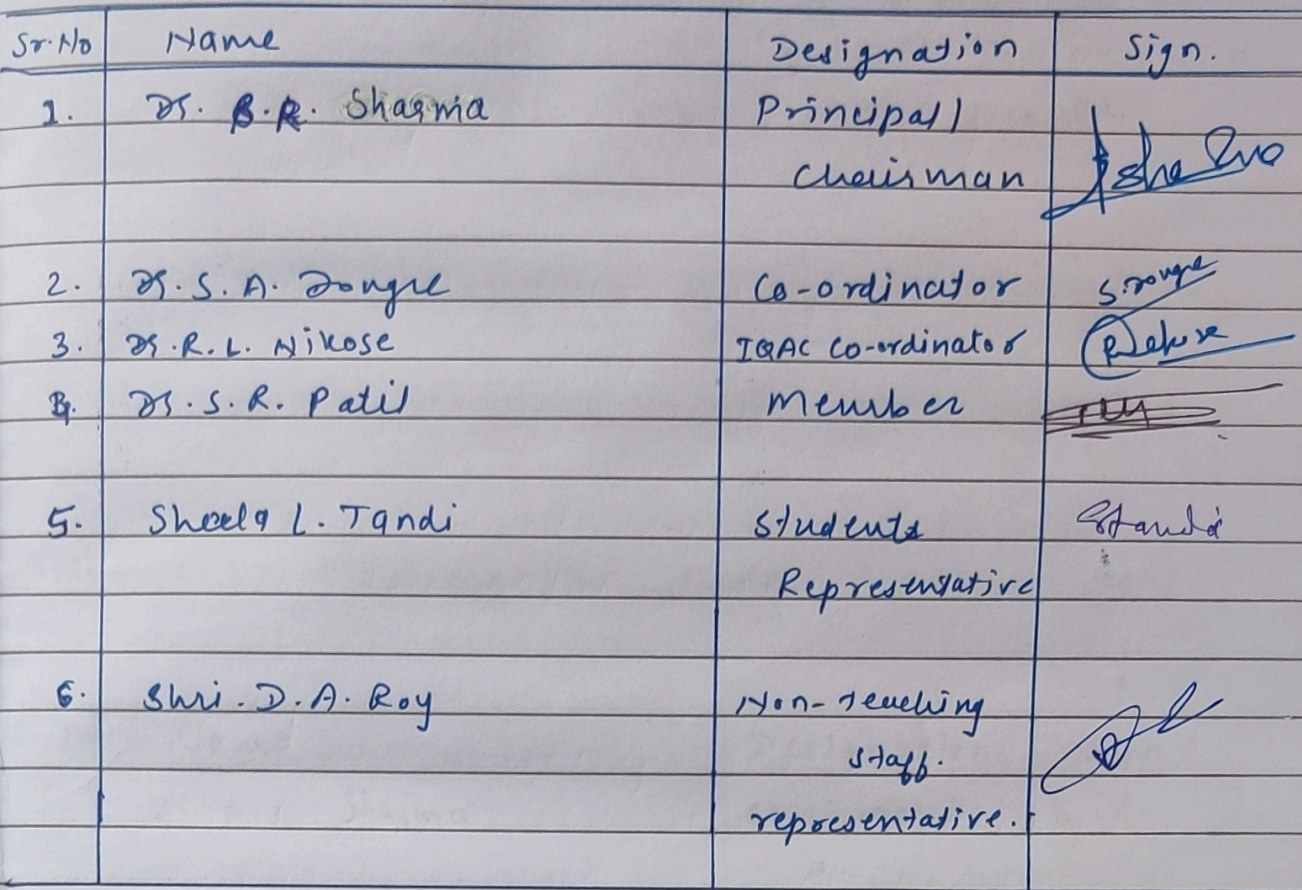 Sr. No Name Designation Sign.
1. Dr. B.R. Sharma Principal /
Chairman
2. Dr. S. A. Dongre Co-ordinator S. Dongre
3. Dr. R. L. Nikose IQAC Co-ordinator
4. Dr. S. R. Patil Member
5. Sheela L. Tandi Students
Representative
6. Shri. D. A. Roy Non-teaching
staff.
representative.